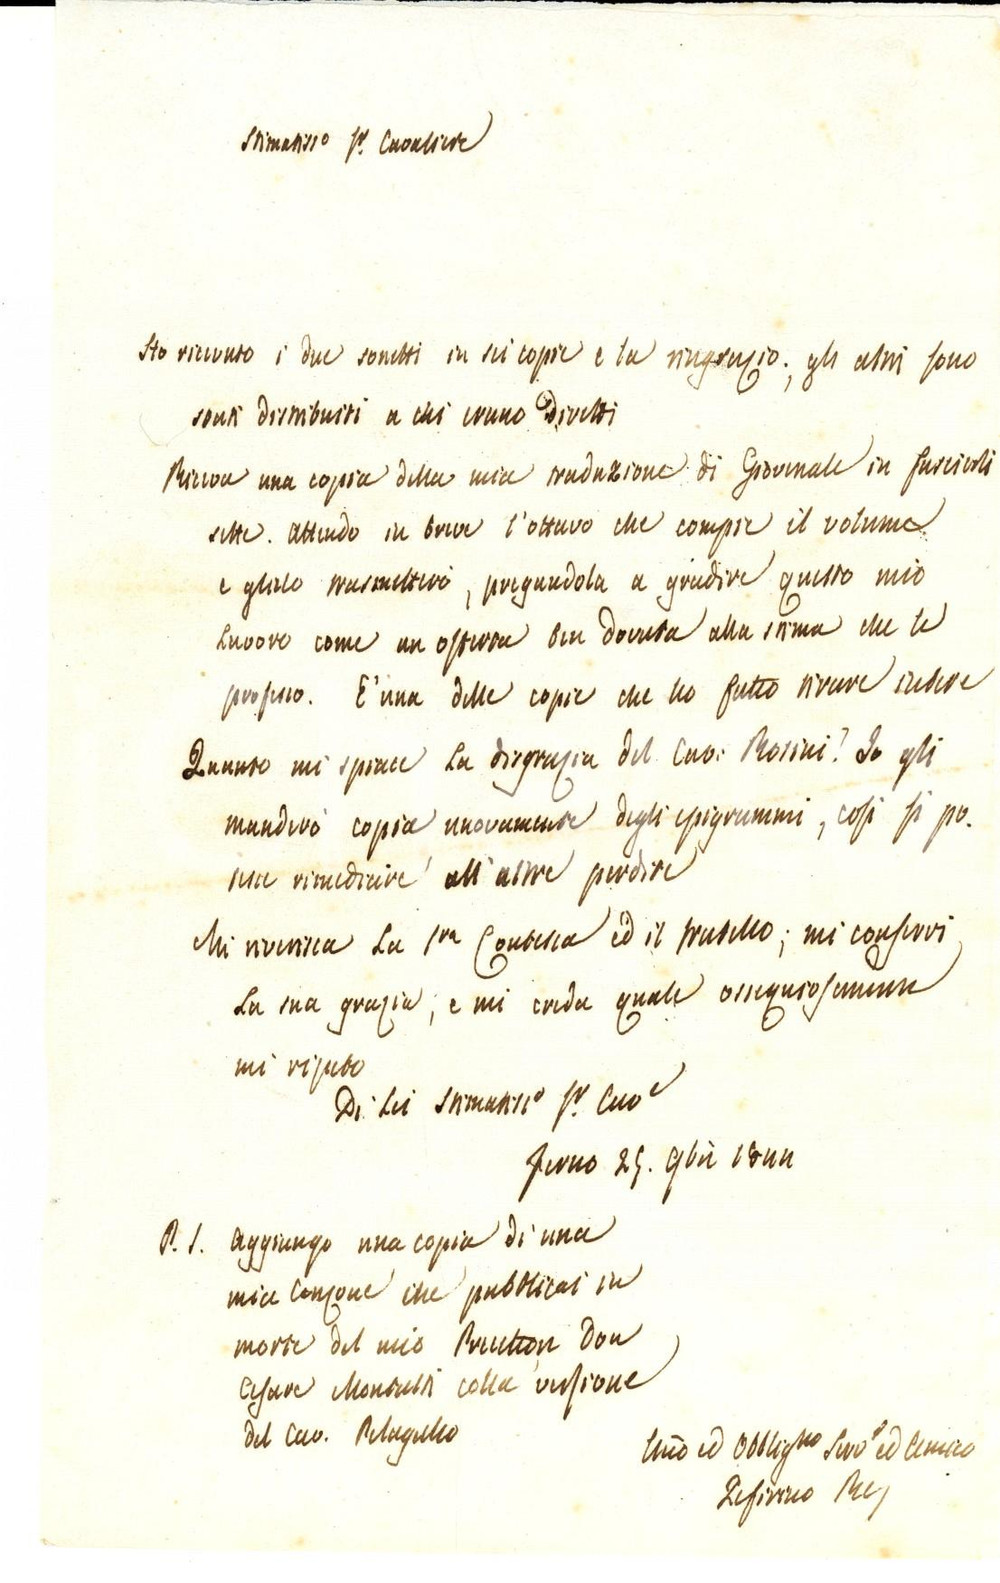 Stimatisso Sr. Cavaliere
Ho ricevuto i due sonetti in sei copie e la ringrazio; gli altri sono
stati distribuiti a chi erano diretti
Riceva una copia della mia traduzione di Giovenale in fascicoli
sette. Attendo in breve l'ottavo che compie il volume
e glielo trasmetterò, pregandola a gradire questo mio
lavoro come un offerta ben dovuta alla stima che le
professo. E' una delle copie che ho fatto tirare intere
Quanto mi spiace la disgrazia del Cav. Rosini! Io gli
manderò copia nuovamente degli epigrammi, così si po-
tesse rimediare all'altre perdite
Mi riverisca la Sra Contessa ed il fratello; mi conservi
la sua grazia, e mi creda quale ossequiosamente
mi ripeto
Di Lei Stimatisso Sr. Cave
Fermo 25. 9bre 1844
P. S. Aggiungo una copia di una
mia Canzone che pubblicai in
morte del mio Precettore Don
Cesare Montalti colla versione
del Cav. Pelagallo
Umo ed Obbligmo Servre ed Amico
Zefirino Re